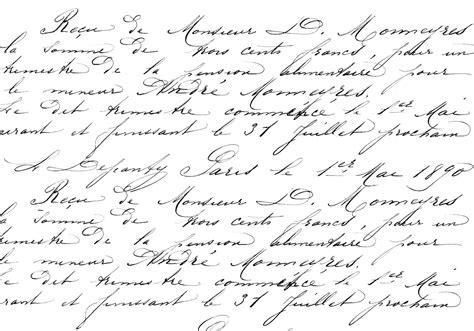 Reçu de Monsieur D. Monneyres
la somme de trois cents francs, pour un
trimestre de la pension alimentaire pour
le mineur André Monneyres.
Le dit trimestre commence le 1er Mai
courant et finissant le 31 Juillet prochain
Paris le 1er Mai 1890
Reçu de Monsieur D. Monneyres
la somme de trois cents francs, pour un
trimestre de la pension alimentaire pour
le mineur André Monneyres.
Le dit trimestre commence le 1er Mai
courant et finissant le 31 Juillet prochain